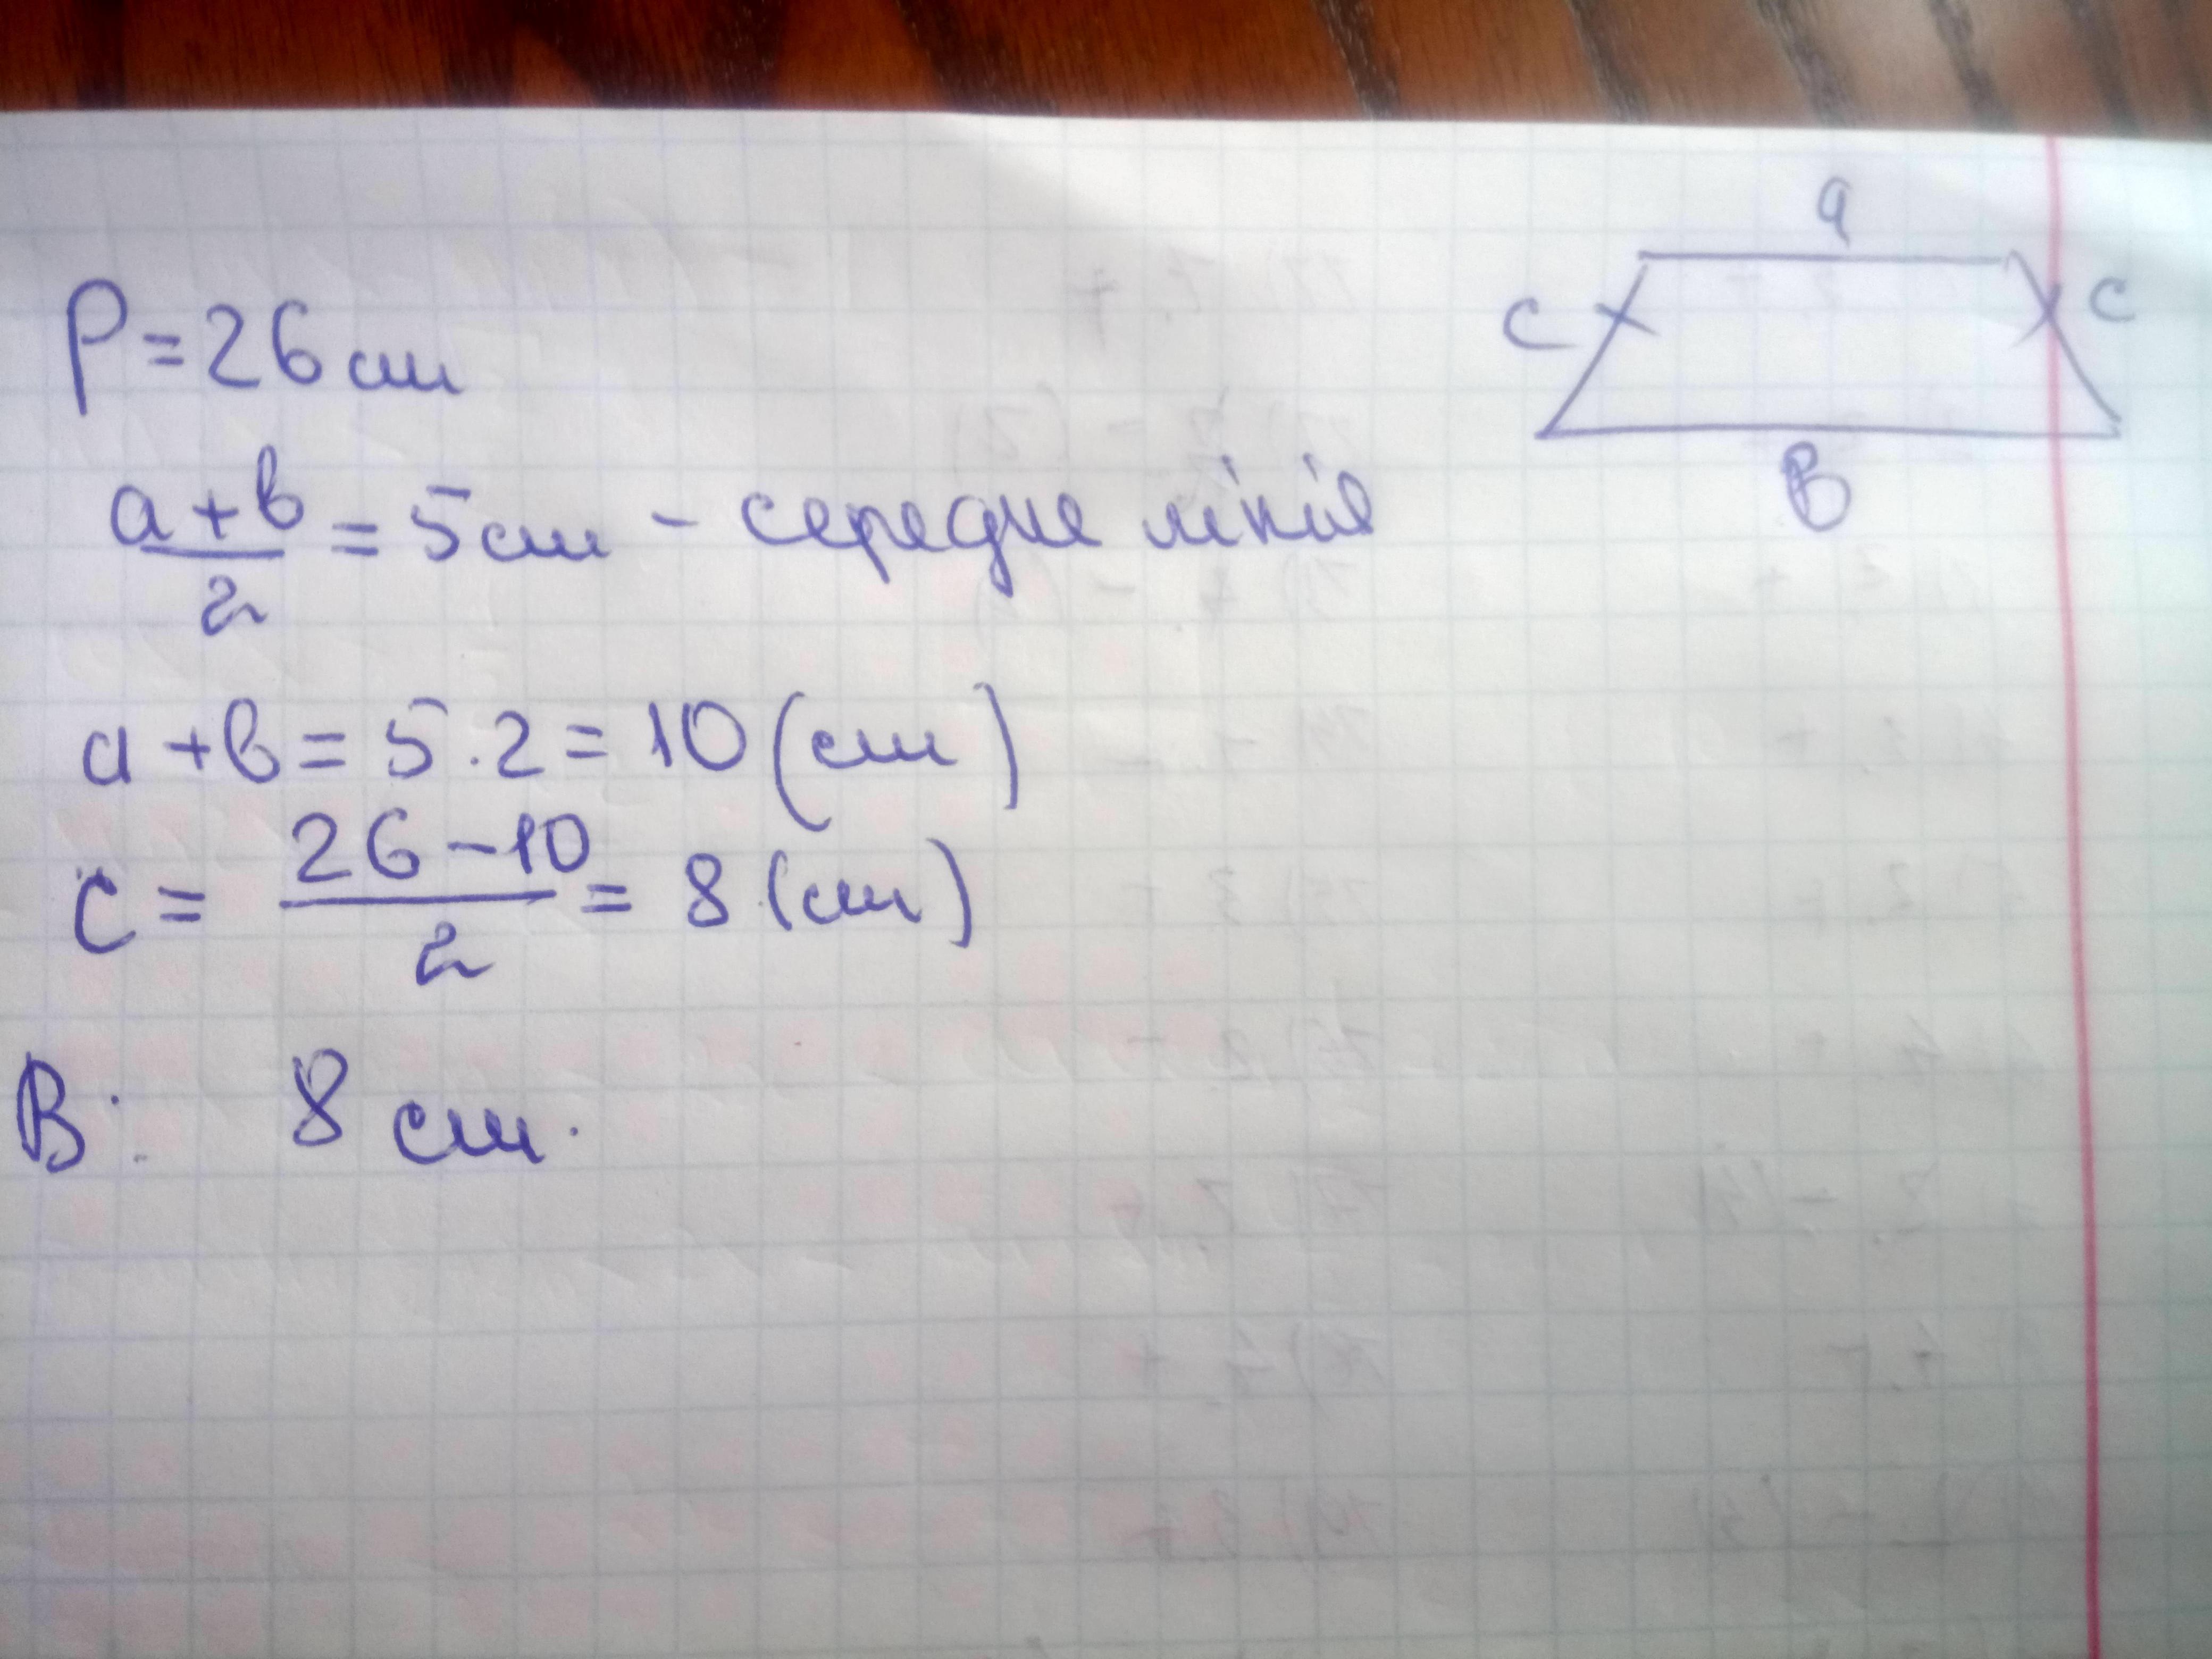 a
c c
в
P = 26 см
(a + в)/2 = 5 см - середне лінія
a + в = 5 · 2 = 10 (см)
c = (26 - 10)/2 = 8 (см)
В: 8 см.